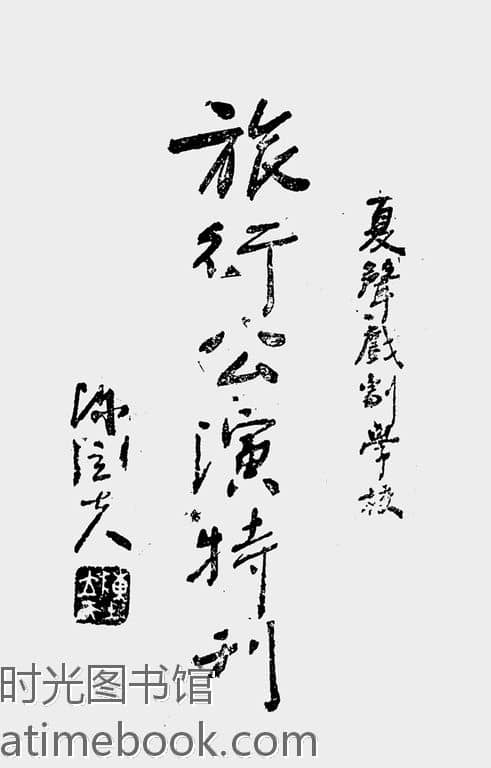 夏聲戲劇學校
旅行公演特刊
时光图书馆
atimebook.com